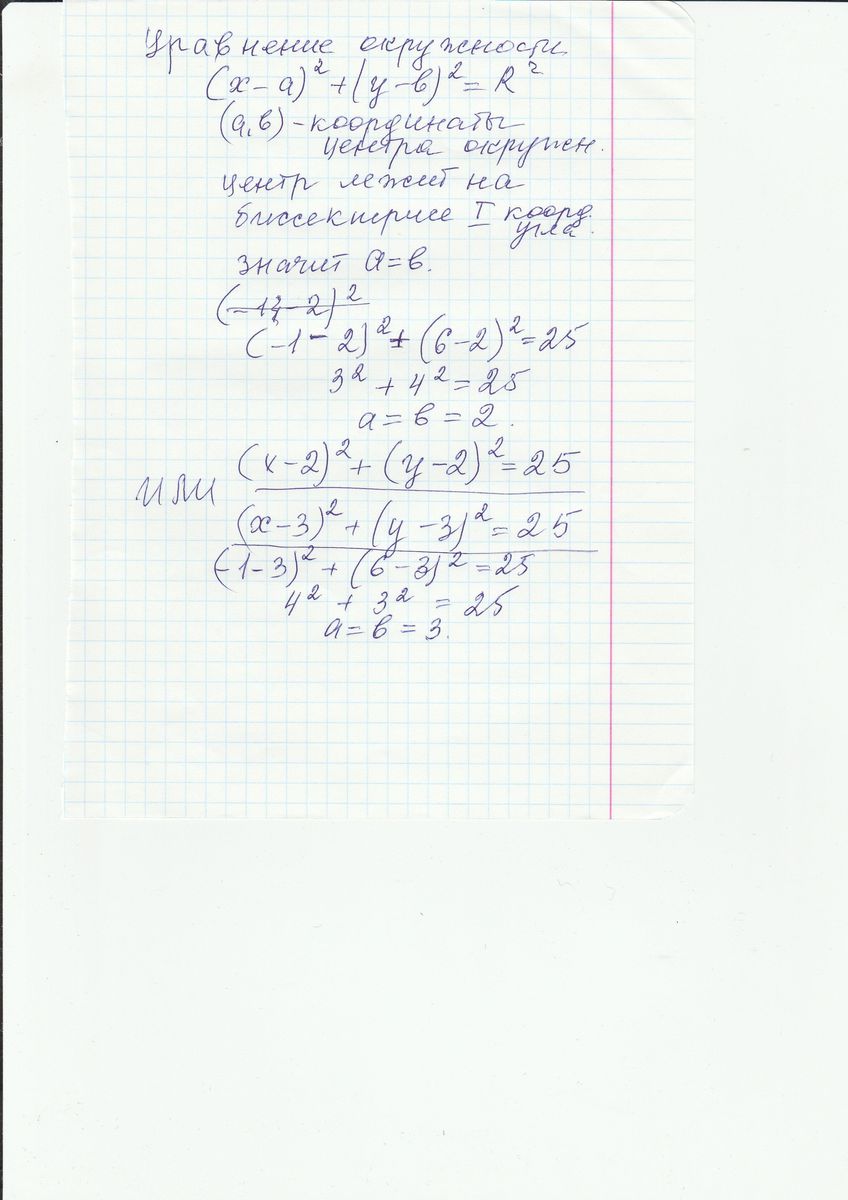 Уравнение окружности
(x-a)² + (y-в)² = R²
(а,в) - координаты
центра окружн.
центр лежит на
биссектрисе I коорд.
угла.
значит a=в.
(-1-2)²
(-1-2)² + (6-2)² = 25
3² + 4² = 25
a = в = 2.
(x-2)² + (y-2)² = 25
или
(x-3)² + (y-3)² = 25
(-1-3)² + (6-3)² = 25
4² + 3² = 25
a = в = 3.